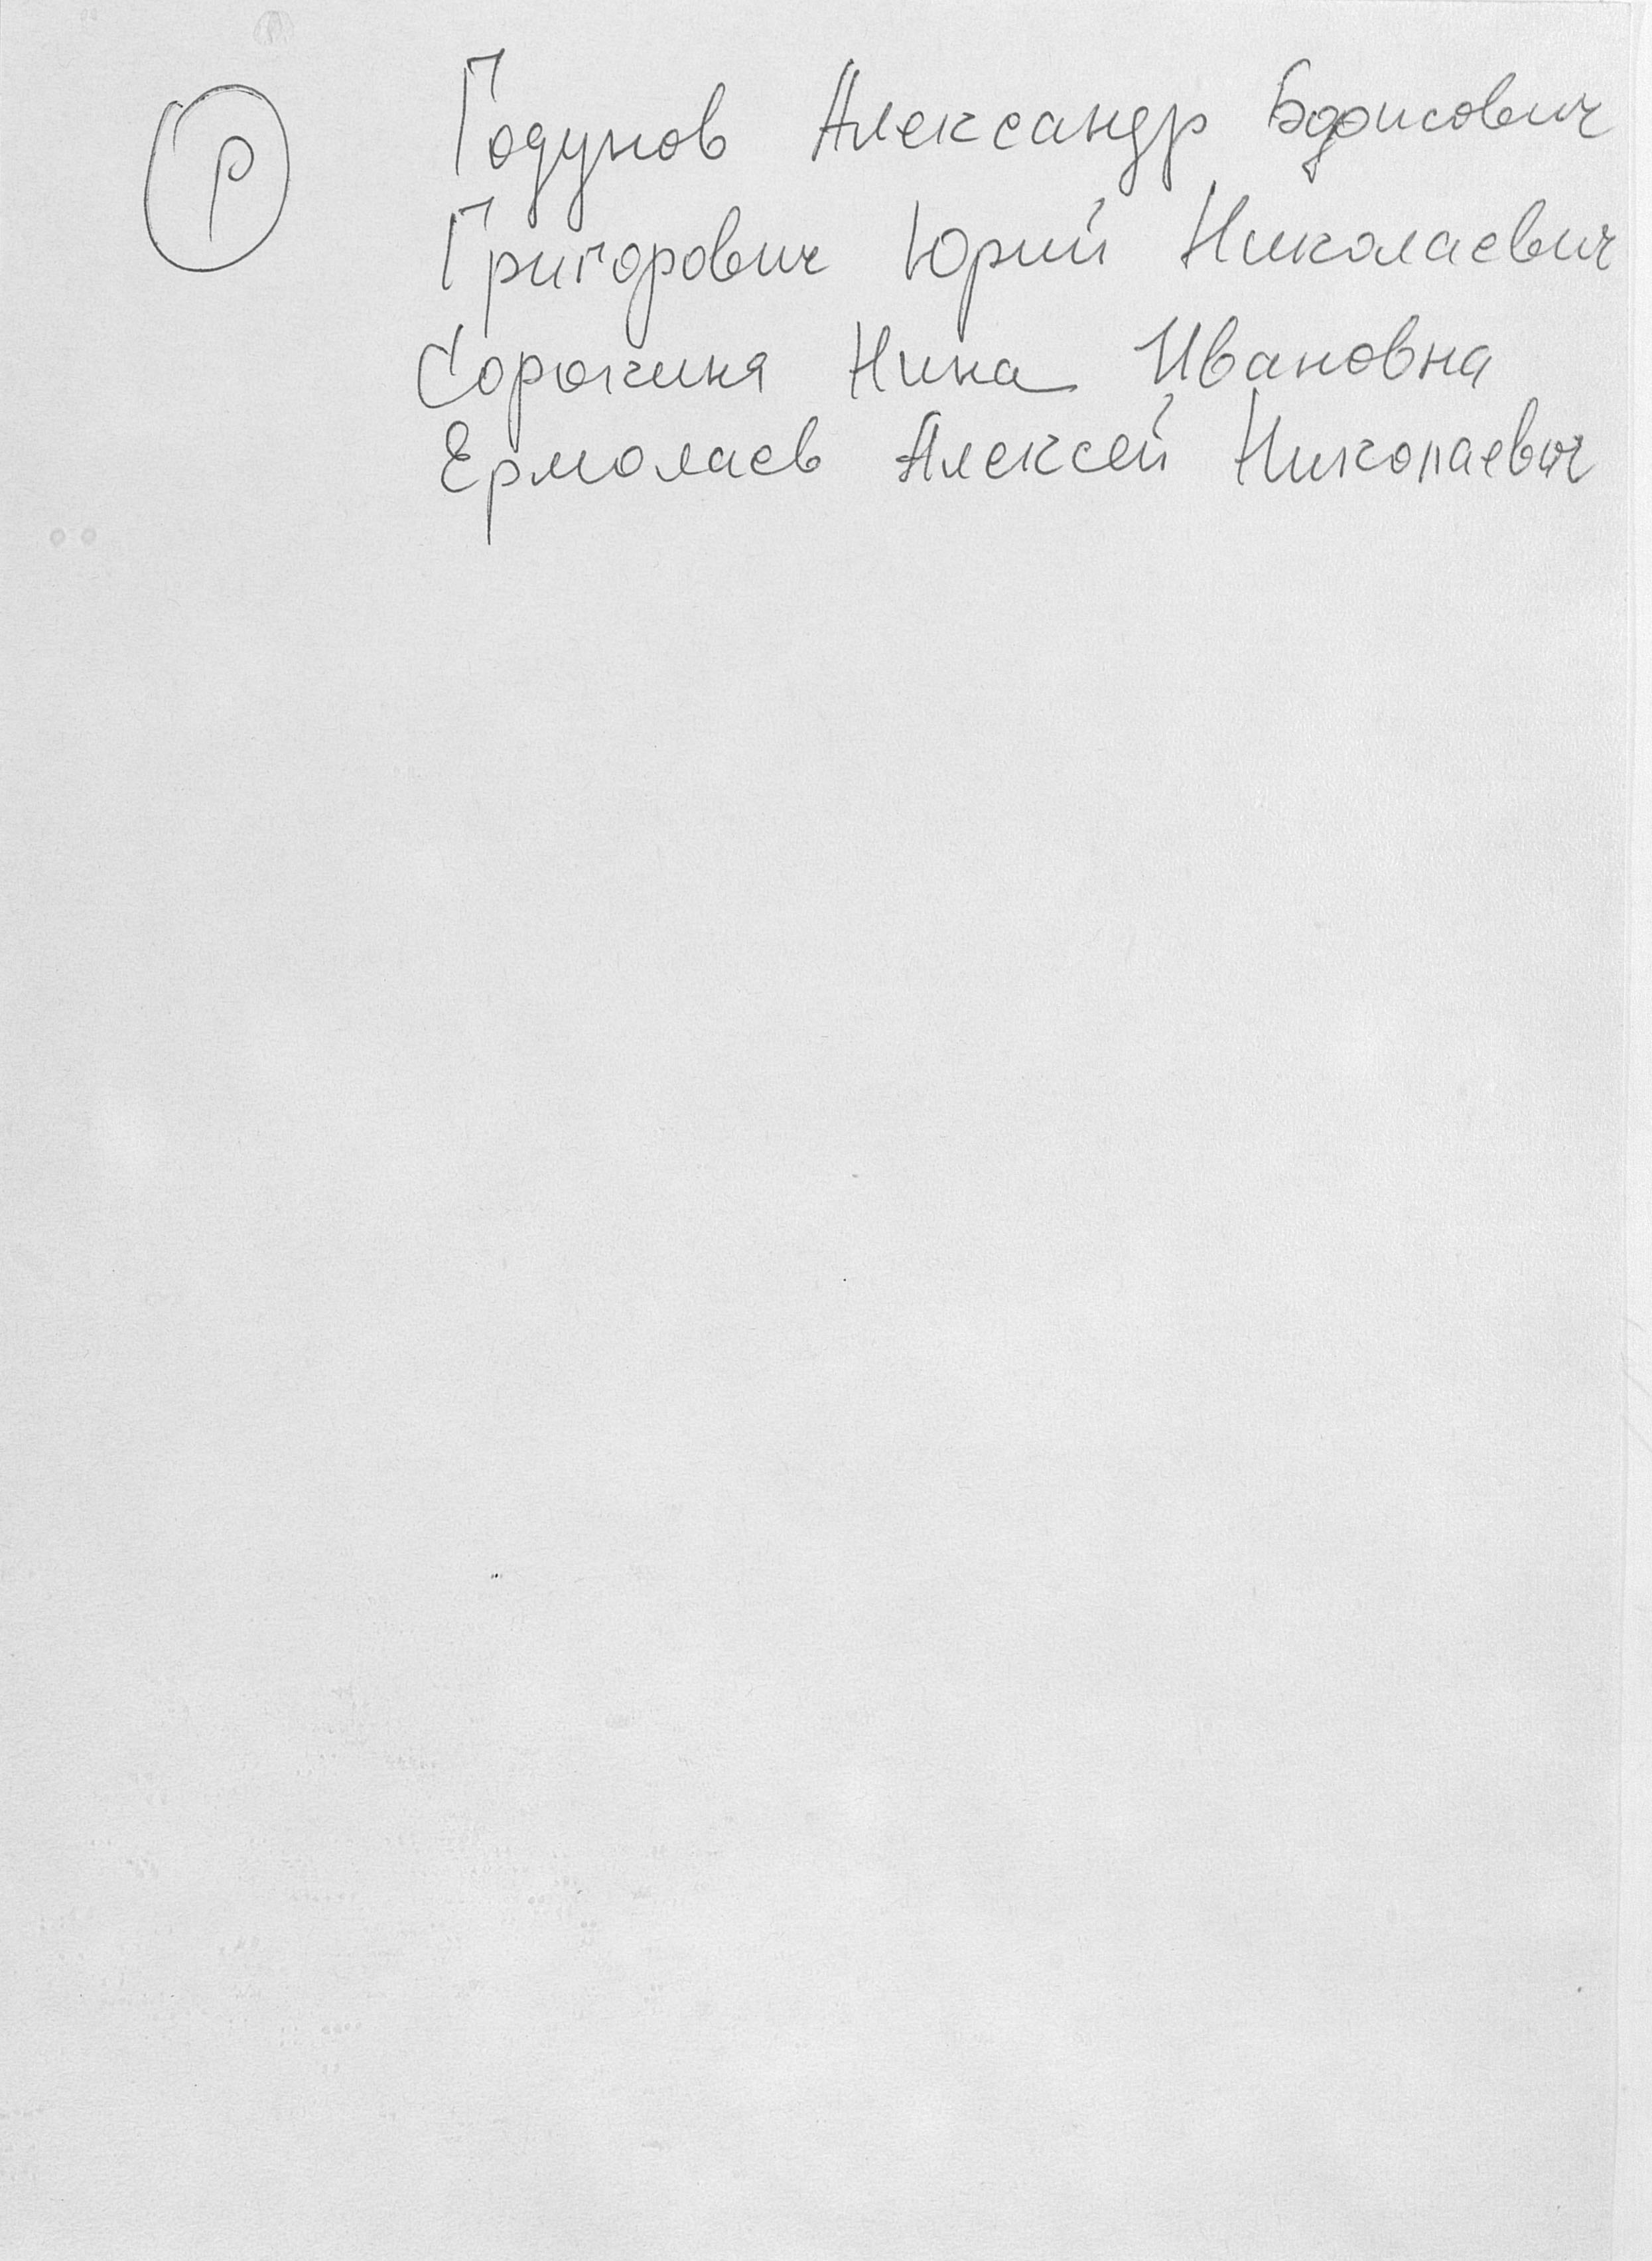 Р
Годунов Александр Борисович
Григорович Юрий Николаевич
Сорокина Нина Ивановна
Ермолаев Алексей Николаевич